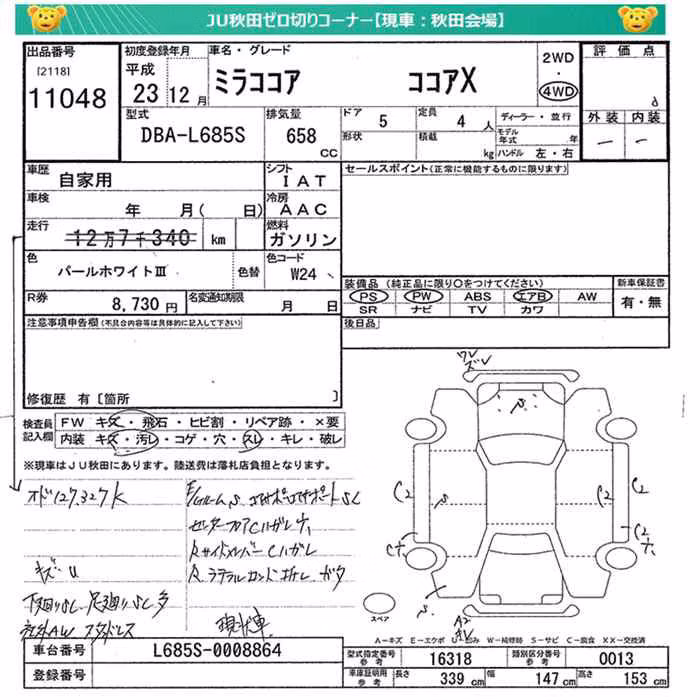 JU秋田ゼロ切りコーナー【現車：秋田会場】
出品番号 初度登録年月 車名・グレード 評価点
[2118] 平成
11048 23 12月 ミラココア ココアX 2WD 4WD
外装 内装
型式 排気量 ドア 5 定員 4人 ディーラー・並行
DBA-L685S 658 CC 形状 積載 kg モデル年式 年 ハンドル 左・右
ー ー
車歴 自家用 シフト IAT セールスポイント(正常に機能するものに限ります)
車検 年 月( 日) 冷房 AAC
走行 12万7千340 km 燃料 ガソリン
色 パールホワイトⅢ 色替 色コード W24
装備品(純正品に限り○をつけてください) 新車保証書
PS PW ABS エアB AW 有・無
SR ナビ TV カワ
R券 8,730円 名変通知期限 月 日
後日品
注意事項申告欄(不具合内容等は具体的に記入して下さい)
修復歴 有〔箇所 〕
検査員記入欄 FW キズ・飛石・ヒビ割・リペア跡・×要
内装 キズ・汚レ・コゲ・穴・スレ・キレ・破レ
※現車はJU秋田にあります。陸送費は落札店負担となります。
オド127,327K
キズU
下廻りSC 足廻りSC多
社外AW スタッドレス
センターフロアCハガレ穴
RサイドメンバーCハガレ
Rラテラルロッド折れ ガタ
現状車
C2 C2
C2 穴
C穴
S
A2
スペア
A－キズ E－エクボ U－凹み W－補修跡 S－サビ C－腐食 XX－交換済
車台番号 L685S-0008864 型式指定番号 参考 16318 類別区分番号 参考 0013
登録番号 車庫証明用 参考 長さ 339 cm 幅 147 cm 高さ 153 cm